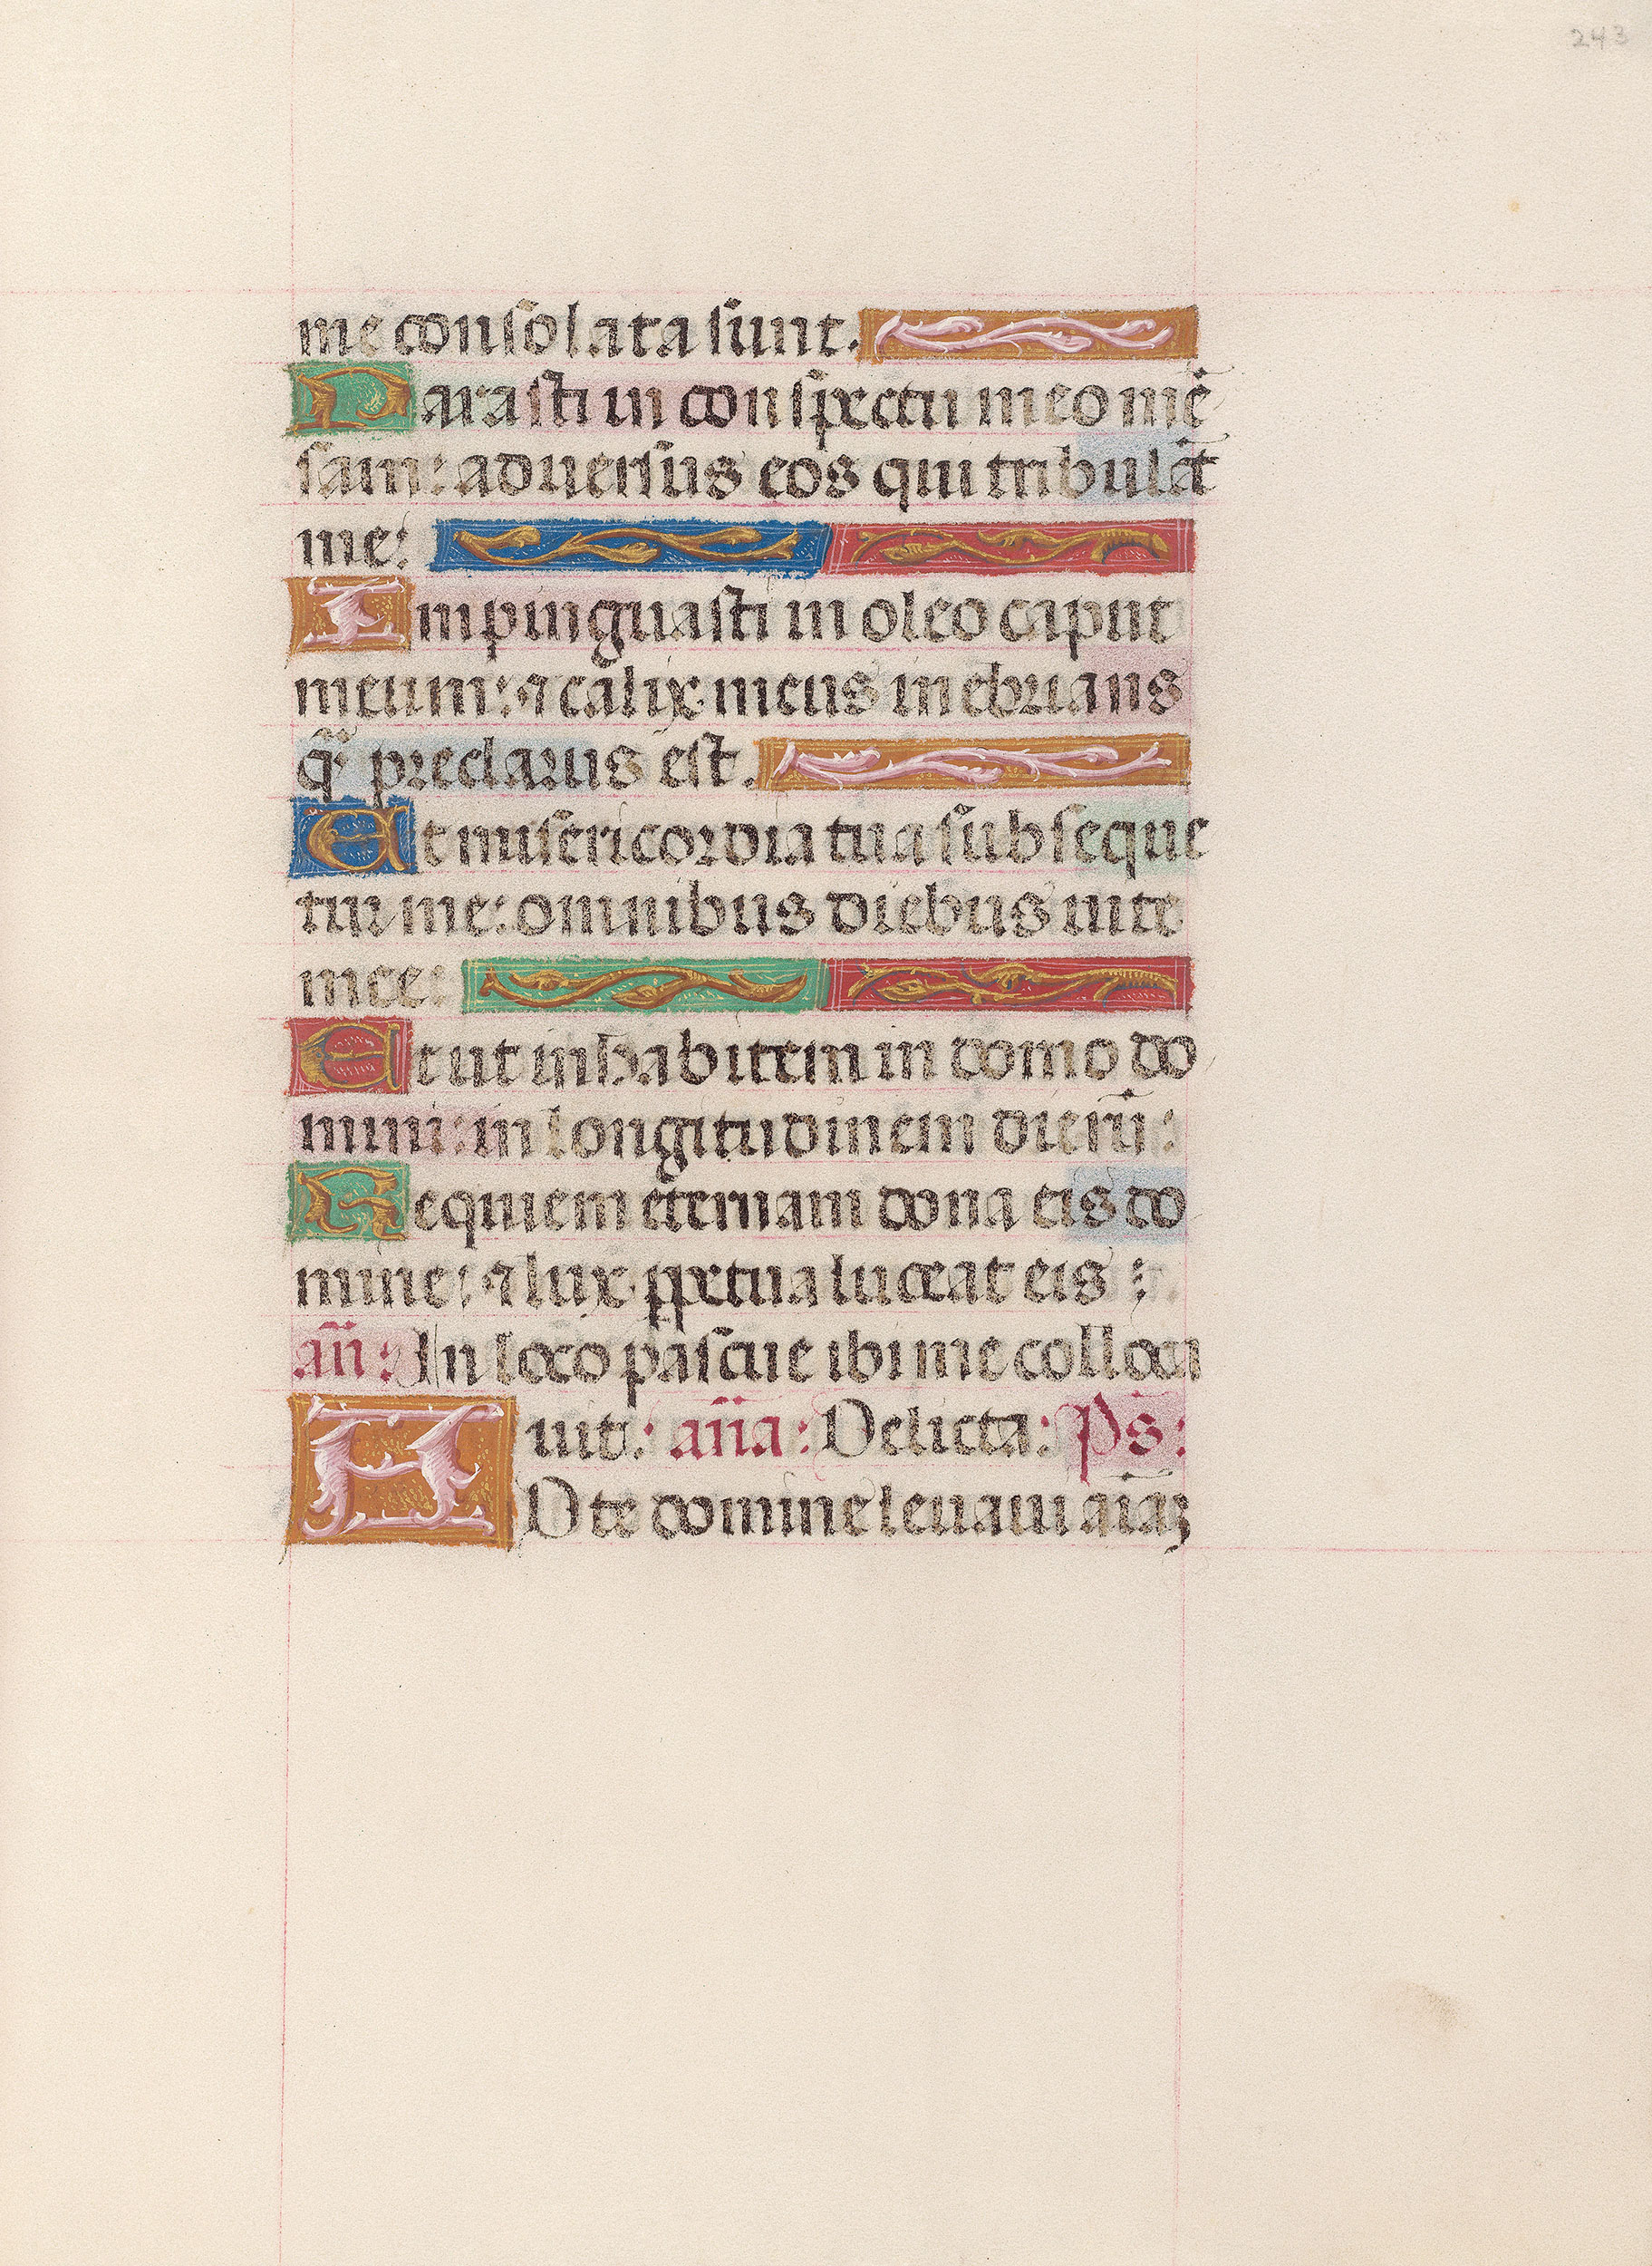 243
me consolata sunt.
Parasti in conspectu meo mē
sam: aduersus eos qui tribulāt
me:
Impinguasti in oleo caput
meum: ⁊ calix meus inebrians
q̄ preclarus est.
Et misericordia tua subseque
tur me: omnibus diebus uite
mee:
Et ut inhabitem in domo do
mini: in longitudinem dierū:
Requiem eternam dona eis do
mine: ⁊ lux ꝑpetua luceat eis :
an̄: In loco pascue ibi me colloca
uit: an̄a: Delicta: Ps̄:
AD te domine leuaui aīaꝫ